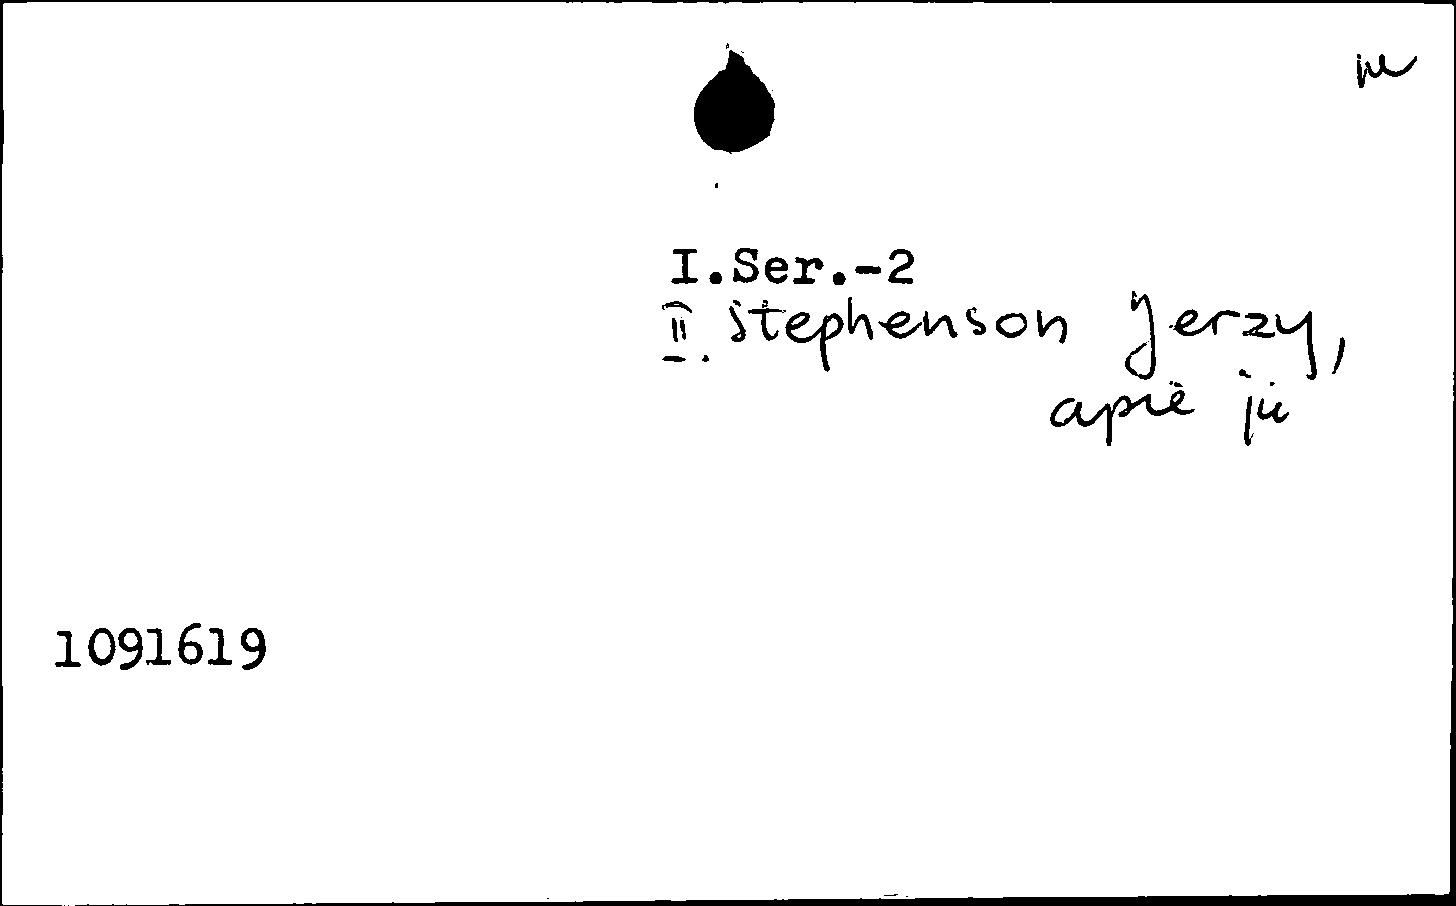 I.Ser.-2
II. Stephenson Jerzy,
apie jį
1091619